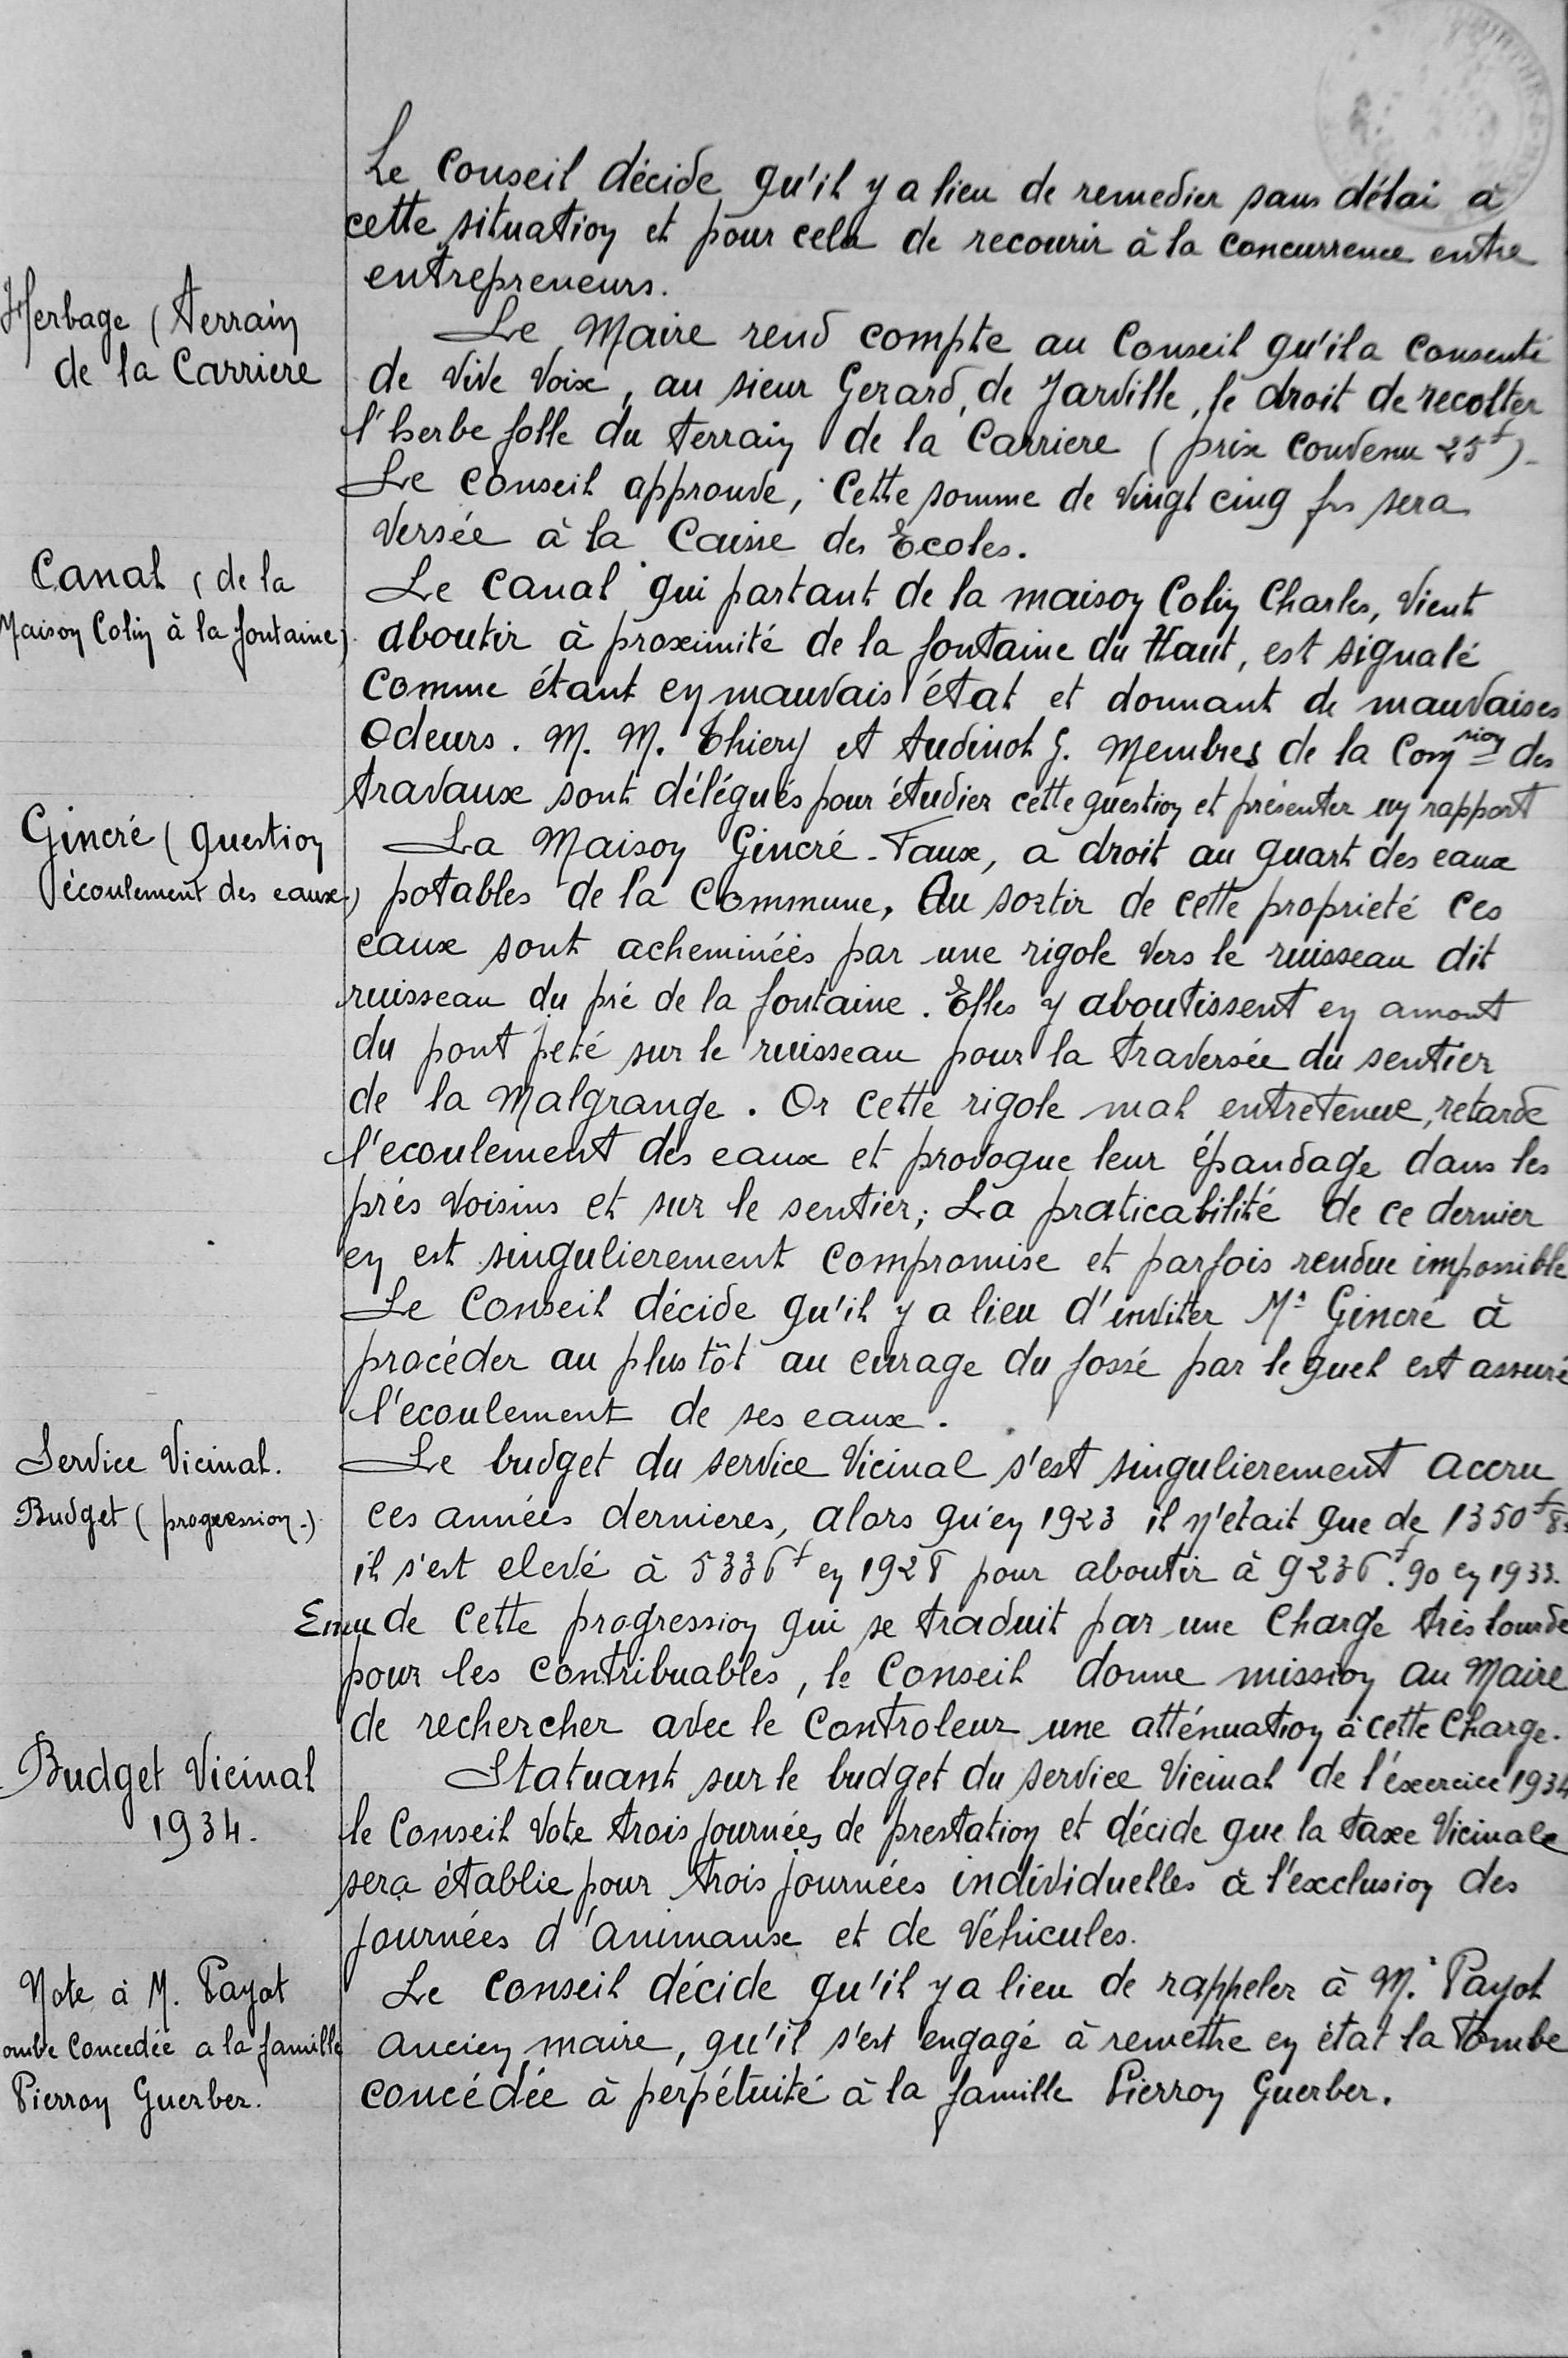 Le Conseil décide qu'il y a lieu de remedier sans délai à
cette situation et pour cela de recourir à la concurrence entre
entrepreneurs.
Herbage (Terrain
de la Carriere
Le Maire rend compte au Conseil qu'il a consenti
de vive voix, au sieur Gerard, de Jarville, le droit de recolter
l'herbe folle du terrain de la Carriere (prix convenu 25f)-
Le Conseil approuve, Cette somme de vingt cinq frs sera
versée à la Caisse des Ecoles.
Canal (de la
Maison Colin à la fontaine)
Le Canal qui partant de la maison Colin Charles, vient
aboutir à proximité de la fontaine du Haut, est signalé
comme étant en mauvais état et donnant de mauvaises
odeurs. M. M. Thiery et Audinot G. Membres de la Comsion des
travaux sont délégués pour étudier cette question et présenter un rapport
Gincré (question
écoulement des eaux.)
La Maison Gincré-Faux, a droit au quart des eaux
potables de la Commune, Au sortir de cette proprieté ces
eaux sont acheminées par une rigole vers le ruisseau dit
ruisseau du pré de la fontaine. Elles y aboutissent en amont
du pont jeté sur le ruisseau pour la traversée du sentier
de la Malgrange. Or cette rigole mal entretenue, retarde
l'ecoulement des eaux et provoque leur épandage dans les
prés voisins et sur le sentier; La praticabilité de ce dernier
en est singulierement compromise et parfois rendue impossible
Le Conseil décide qu'il y a lieu d'inviter Mr Gincré à
procéder au plus tôt au curage du fossé par lequel est assuré
l'ecoulement de ses eaux.
Service Vicinal.
Budget (progression.)
Le budget du service Vicinal s'est singulierement accru
ces années dernieres, alors qu'en 1923 il n'était que de 1350f
il s'est elevé à 5336f en 1928 pour aboutir à 9236f.90 en 1933.
Emu de cette progression qui se traduit par une Charge très lourde
pour les contribuables, le Conseil donne mission au Maire
de rechercher avec le Controleur une atténuation à cette Charge.
Budget Vicinal
1934.
Statuant sur le budget du service Vicinal de l'éxercice 1934
le Conseil vote trois journées de prestation et décide que la taxe Vicinale
sera établie pour trois journées individuelles à l'exclusion des
journées d'animaux et de Véhicules.
Note à M. Payot
ombe Concedée a la famille
Pierron Guerber.
Le Conseil décide qu'il y a lieu de rappeler à M. Payot
ancien maire, qu'il s'est engagé à remettre en état la Tombe
concédée à perpétuité à la famille Pierron Guerber.